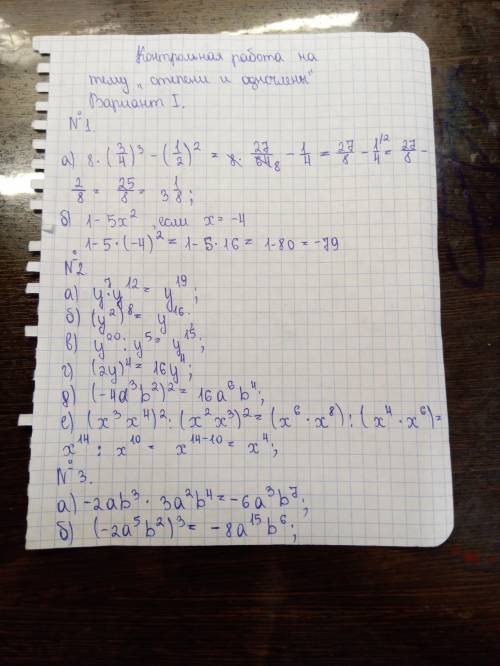 Контрольная работа на
тему „степени и одночлены"
Вариант I.
№1.
а) 8·(3/4)³ - (1/2)² = 8·27/64₈ - 1/4 = 27/8 - 1\²/4 = 27/8 -
2/8 = 25/8 = 3 1/8;
б) 1-5x², если x = -4
1-5·(-4)² = 1-5·16 = 1-80 = -79
№2
а) y⁷·y¹² = y¹⁹;
б) (y²)⁸ = y¹⁶;
в) y²⁰ : y⁵ = y¹⁵;
г) (2y)⁴ = 16y⁴;
д) (-4a³b²)² = 16a⁶b⁴;
е) (x³x⁴)² : (x²x³)² = (x⁶·x⁸) : (x⁴·x⁶) =
x¹⁴ : x¹⁰ = x¹⁴⁻¹⁰ = x⁴;
№3.
а) -2ab³ · 3a²b⁴ = -6a³b⁷;
б) (-2a⁵b²)³ = -8a¹⁵b⁶;